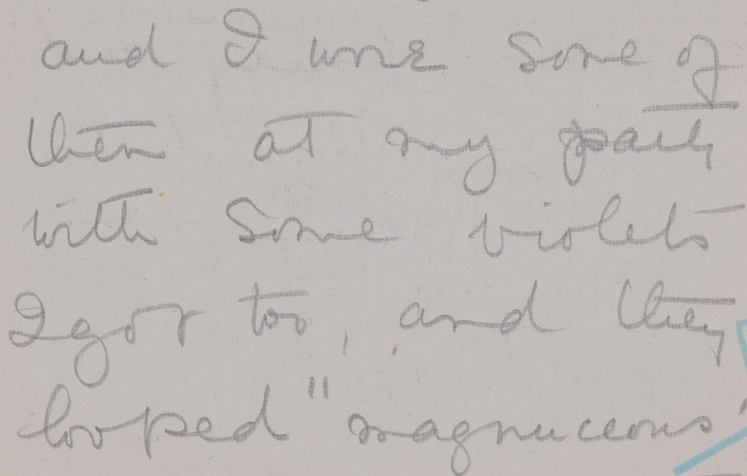 and I wore some of
them at my party
with some violets
I got too, and they
looped "magnuceous"